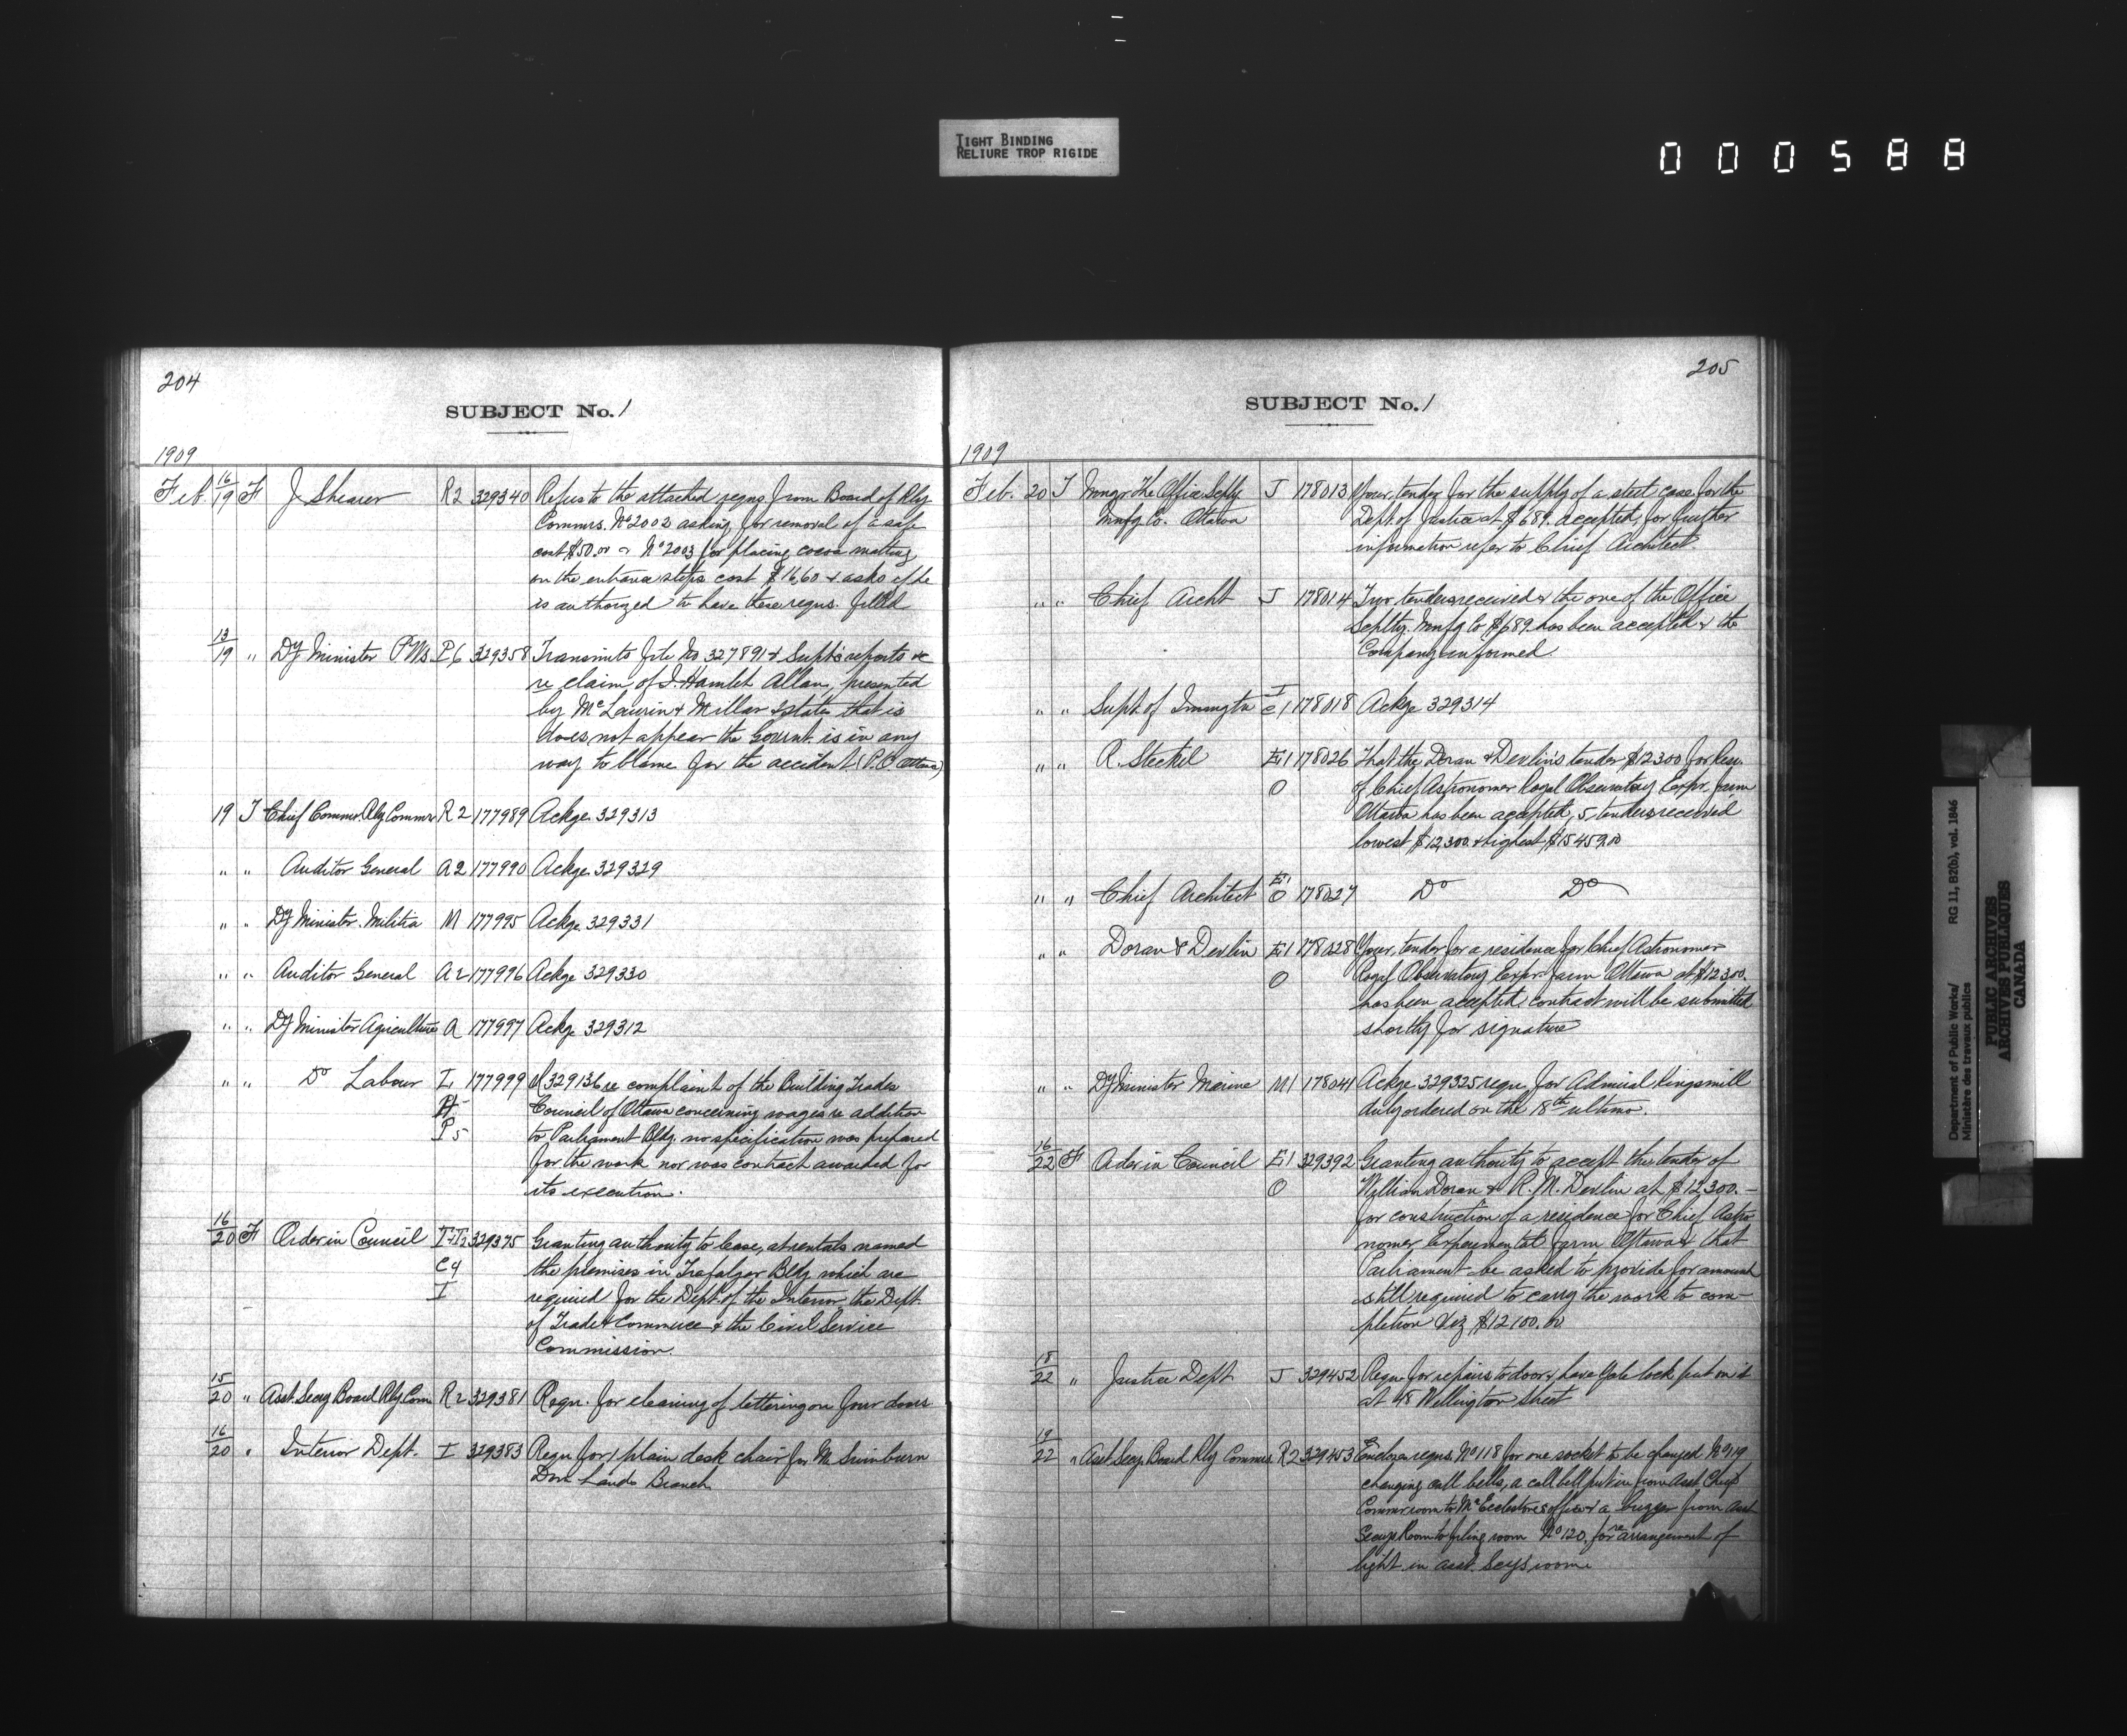 TIGHT BINDING
RELIURE TROP RIGIDE
000588
204
SUBJECT No. 1
1909
Feb. 16/19 F J Shearer R2 329340 Refers to the attached reqns from Board of Rly
Commrs. No 2002 asking for removal of a safe
cost $50.00 & No 2003 for placing cocoa matting
on the entrance steps cost $16.60 & asks if he
is authorized to have these reqns. filled
13/19 " Dy Minister P Ws P6 329358 Transmits file No 327891 & Supt's reports &c
re claim of J. Hamlet Allan, presented
by McLaurin & Millar & state that is
does not appear the Govrnt. is in any
way to blame for the accident (P.O. Ottawa)
19 T Chief Commr. Rly Commr R2 177989 Ackge 329313
" " Auditor General A2 177990 Ackge. 329329
" " Dy Minister Militia M 177995 Ackge. 329331
" " Auditor General A2 177996 Ackge 329330
" " Dy Minister Agriculture A 177997 Ackge 329312
" " Do Labour L 177999 329136 re complaint of the Building Trades
Council of Ottawa concerning wages re addition
P5 to Parliament Bldg. no specification was prepared
for the work nor was contract awarded for
its execution.
16/20 F Order in Council 329375 Granting authority to lease, at rentals named
C4 the premises in Trafalgar Bldg which are
I required for the Dept. of the Interior the Dept.
of Trade & Commerce & the Civil Service
Commission.
15/20 " Asst. Secy Board Rly Com R2 329381 Reqn. for cleaning of lettering on four doors
16/20 " Interior Dept. I 329383 Reqn for 1 plain desk chair for Mr
Dom Lands Branch
205
SUBJECT No. 1
1909
Feb. 20 T Mngr The Office Splty J 178013 Your tender for the supply of a steel case for the
Mnfg Co. Ottawa Dept of Justice at $689. accepted, for further
information refer to Chief Architect.
" " Chief Archt J 178014 Two tenders received & the one of the Office
Splty. Mnfg Co $689. has been accepted & the
Company informed.
" " Supt. of Immgtn I C1 178018 Ackge 329314
" " R. Steckel E1 178026 That the Doran & Devlin's tender $12300 for Resi.
O of Chief Astronomer Royal Observatory Expr. farm
Ottawa has been accepted, 5 tenders received
lowest $12,300. & highest $15459.00
" " Chief Architect E1 O 178027 Do Do
" " Doran & Devlin E1 178028 Your tender for a residence for Chief Astronomer
O Royal Observatory Expr. farm Ottawa at $12300.
has been accepted contract will be submitted
shortly for signature
" " Dy Minister Marine M1 178041 Ackge 329325 reqn for Admiral Kingsmill
duly ordered on the 18th ultimo.
16/22 F Order in Council E1 329392 Granting authority to accept the tender of
O William Doran & R. M. Devlin at $12,300.—
for construction of a residence for Chief Astro
nomer Experimental farm Ottawa & that
Parliament be asked to provide for amount
still required to carry the work to com-
pletion Viz $12100.00
18/22 " Justice Dept J 329452 Reqn for repairs to door & have Yale lock put on it
at 48 Wellington Street
19/22 " Asst. Secy. Board Rly Commrs R2 329453 Encloses reqns. No 118 for one socket to be changed No 119
changing call bells, a call bell put in from Asst Chief
Commr room to Mr Ecclestone's office & a buzzer from Asst
Secys Room to filing room No 120, for re arrangement of
light in asst. Secy's room
Department of Public Works/ RG 11, B2(b), vol. 1846
Ministère des travaux publics
PUBLIC ARCHIVES
ARCHIVES PUBLIQUES
CANADA